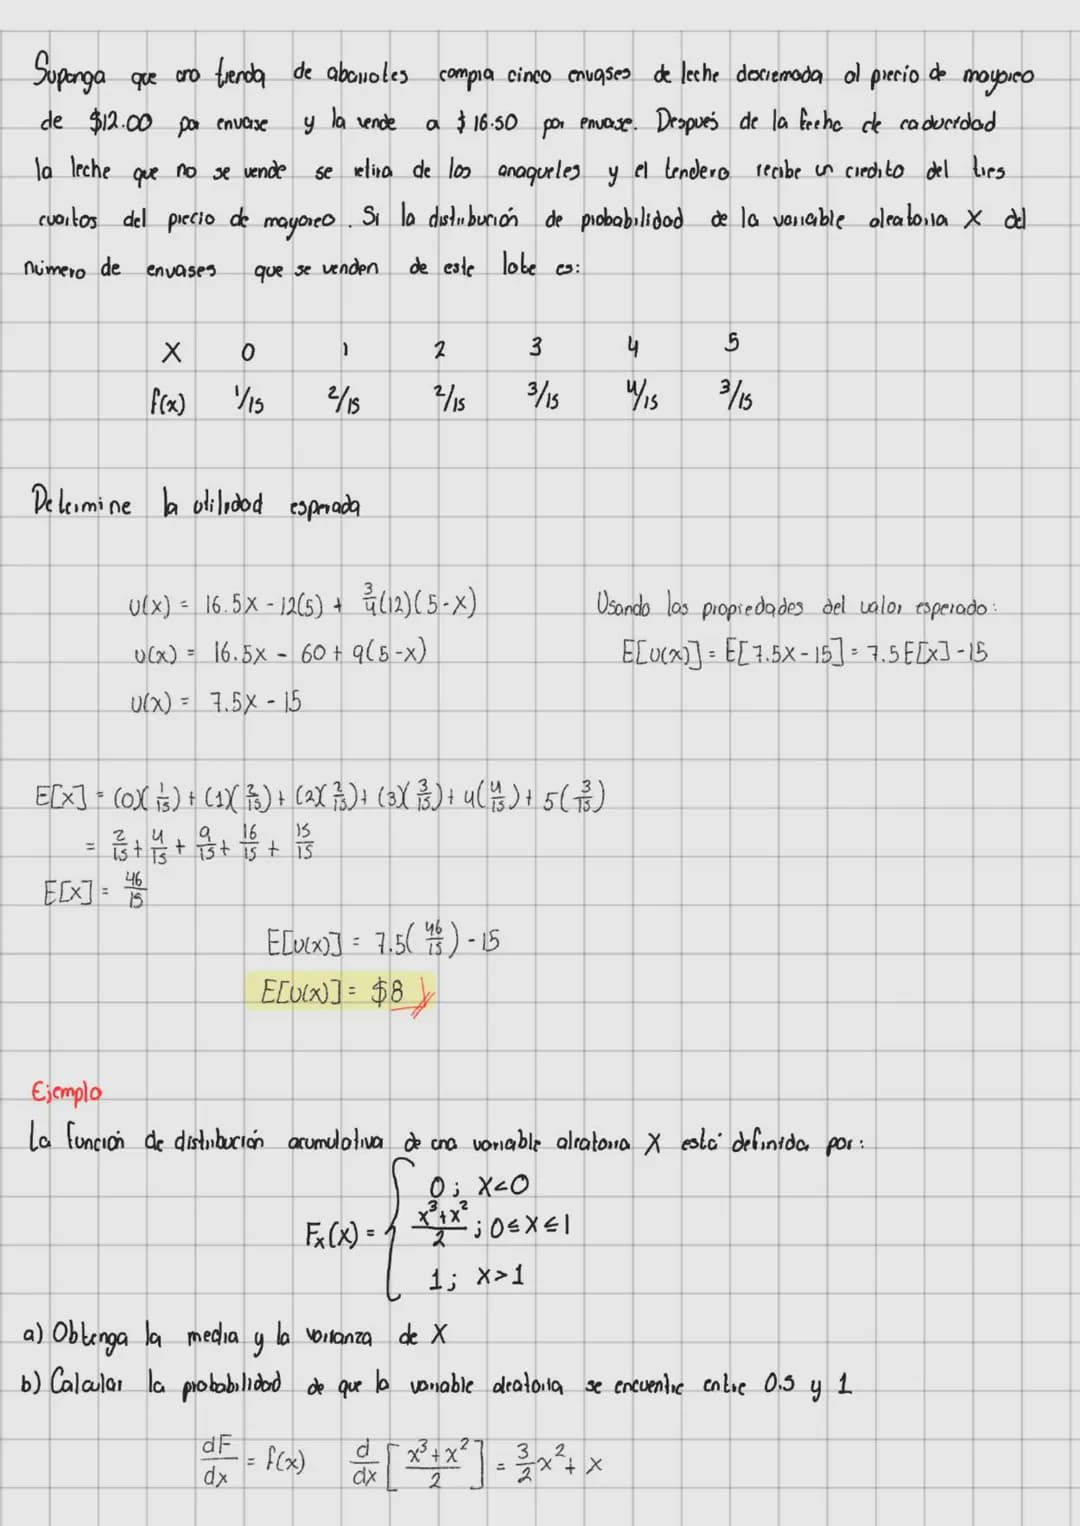 Suponga que una tienda de abarrotes compra cinco envases de leche descremada al precio de mayoreo
de $12.00 por envase y la vende a $16.50 por envase. Después de la fecha de caducidad
la leche que no se vende se retira de los anaqueles y el tendero recibe un credito del tres
cuartos del precio de mayoreo. Si la distribución de probabilidad de la variable aleatoria X del
número de envases que se venden de este lote es:
X 0 1 2 3 4 5
f(x) 1/15 2/15 2/15 3/15 4/15 3/15
Determine la utilidad esperada
U(x) = 16.5X - 12(5) + 3/4(12)(5-X)
Usando las propiedades del valor esperado:
U(x) = 16.5X - 60 + 9(5-x)
E[U(x)] = E[7.5X - 15] = 7.5E[X] - 15
U(x) = 7.5X - 15
E[X] = (0)(1/15) + (1)(2/15) + (2)(2/15) + (3)(3/15) + 4(4/15) + 5(3/15)
= 2/15 + 4/15 + 9/15 + 16/15 + 15/15
E[X] = 46/15
E[U(x)] = 7.5(46/15) - 15
E[U(x)] = $8
Ejemplo
La función de distribución acumulativa de una variable aleatoria X está definida por:
0; X<0
Fx(X) = { x³+x²/2 ; 0≤X≤1
1; X>1
a) Obtenga la media y la varianza de X
b) Calcular la probabilidad de que la variable aleatoria se encuentre entre 0.5 y 1
dF/dx = f(x) d/dx [x³+x²/2] = 3/2x² + x